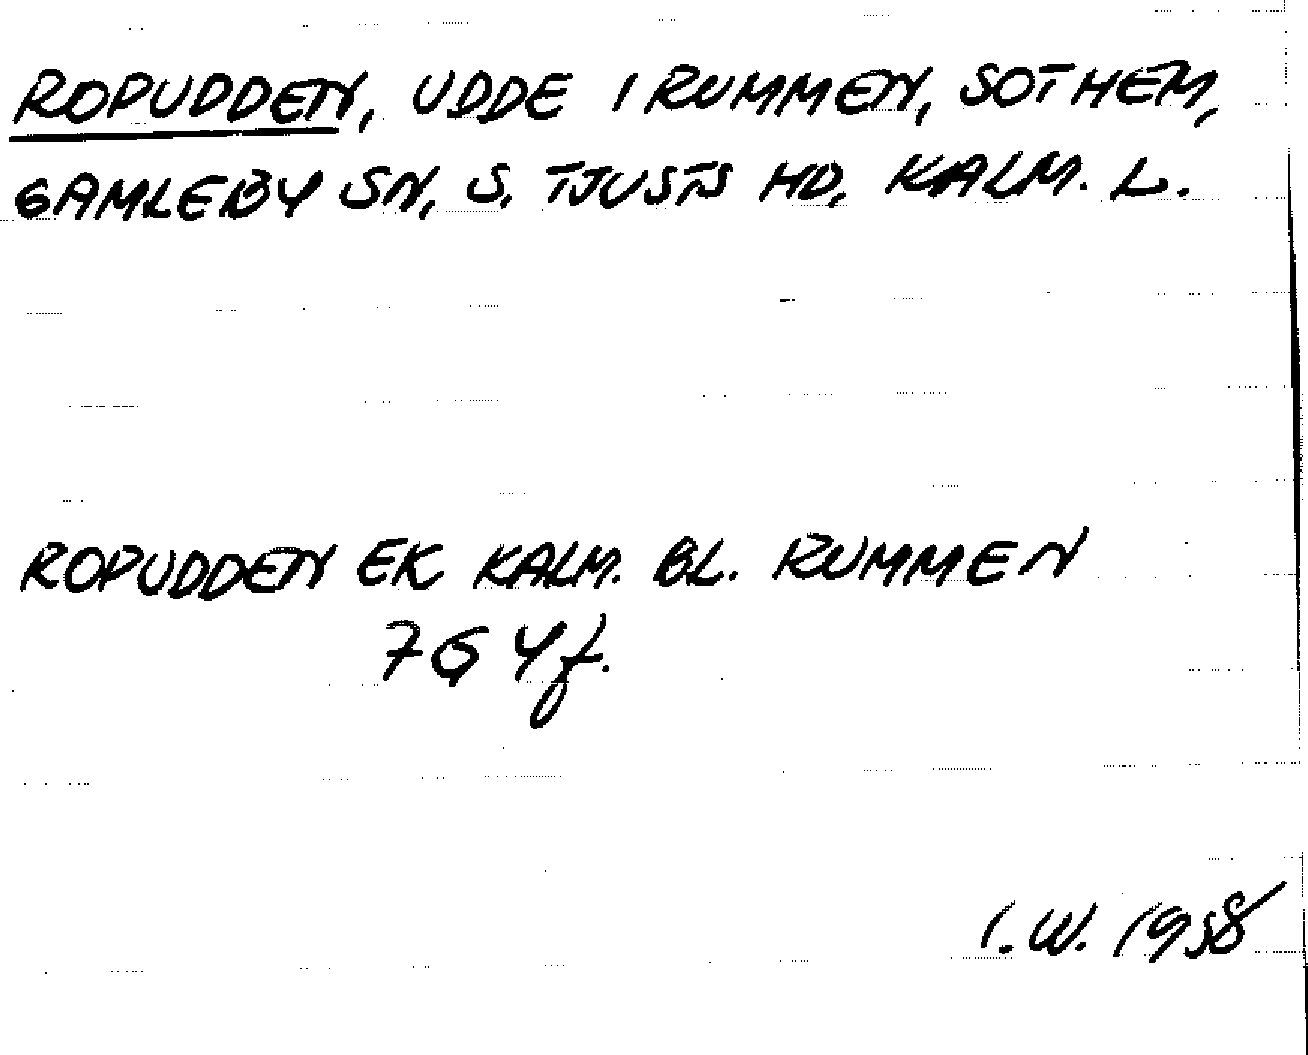 ROPUDDEN, UDDE I RUMMEN, SOTHEM,
GAMLEBY SN, S. TJUSTS HD, KALM. L.
ROPUDDEN EK KALM. BL. RUMMEN
7G4f.
I.W. 1958